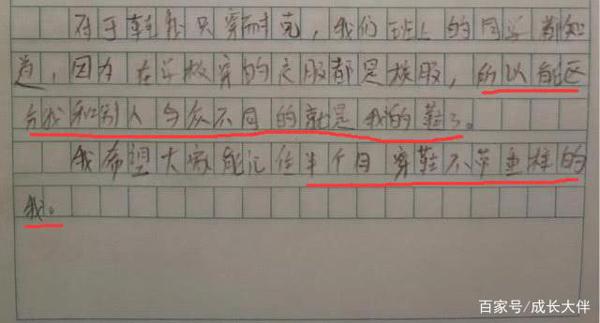 对于鞋我只穿耐克，我们班上的同学都知
道，因为在学校穿的衣服都是校服，所以能区
分我和别人与众不同的就是我的鞋了。
我希望大家能记住半个月穿鞋不带重样的
我。
百家号/成长大伴